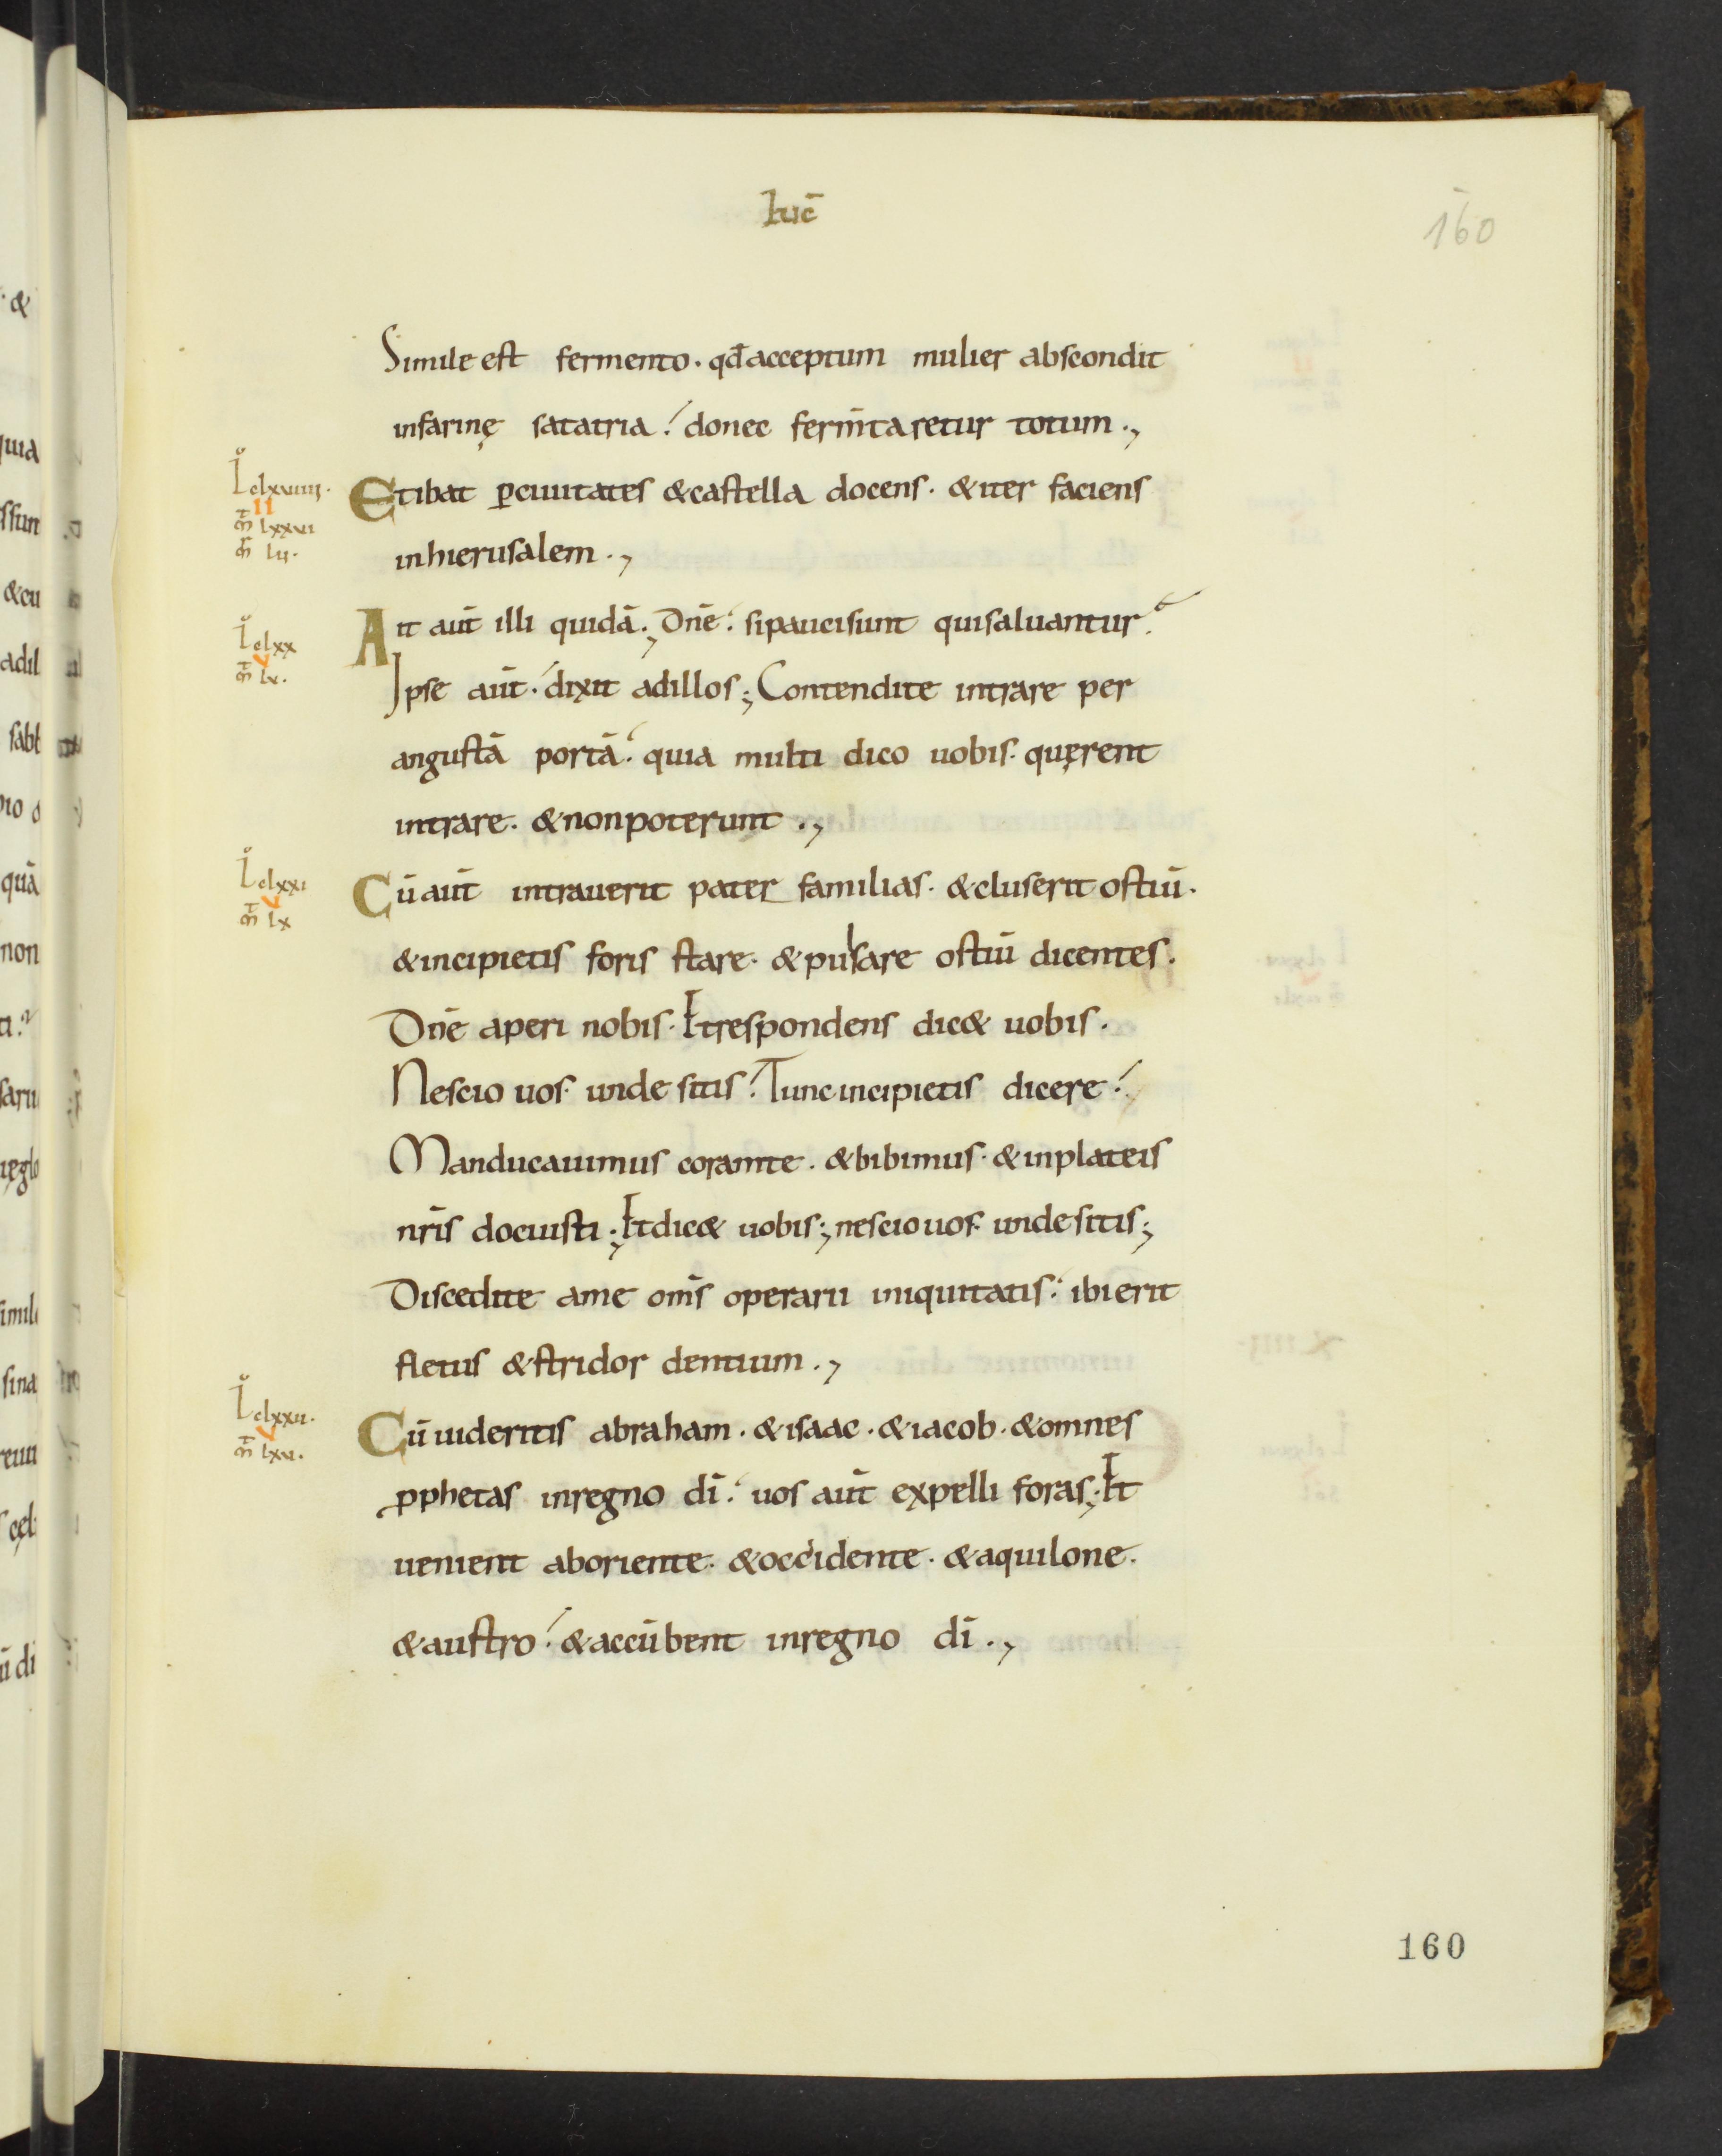 Luc̄
160
Simile est fermento · qđacceptum mulier abscondit
infarinę satatria : donec ferm̄taretur totum .,
L clxviiii ·
II
m̄ lxxvi
m̄ lii ·
Etibat ꝑciuitates &castella docens · &iter faciens
inhierusalem .,
L clxx
V
m̄ lv ·
Ait aūt illi quidā ; Dn̄e : sipaucisunt quisaluantur ?
Ipse aūt : dixit adillos ; Contendite intrare per
angustā portā : quia multi dico uobis · quęrent
intrare · &nonpoterunt .,
L clxxi
V
m̄ lx
Cūaūt intrauerit pater familias · &cluserit ostiū ·
&incipietis foris stare · &pulsare ostiū dicentes ·
Dn̄e aperi nobis · Etrespondens dic& uobis ·
Nescio uos · unde sitis : Tuncincipietis dicere :
Manducauimus coramte · &bibimus · &inplateis
nr̄is docuisti ; Etdic& uobis ; nesciouos · undesitis ;
Discedite ame om̄s operarii iniquitatis : ibierit
fletus &stridor dentium .,
L clxxii ·
V
m̄ lxvi ·
Cūuideritis abraham · &isaac · &iacob · &omnes
ꝓphetas inregno dī : uos aūt expelli foras ; Et
uenient aboriente · &occidente · &aquilone ·
&austro : &accūbent inregno dī .,
160